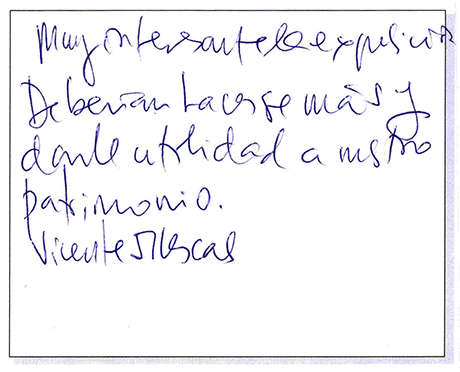 Muy interesante la exposición
Deberían hacerse más y
darle utilidad a nstro
patrimonio.
Vicente Illescas